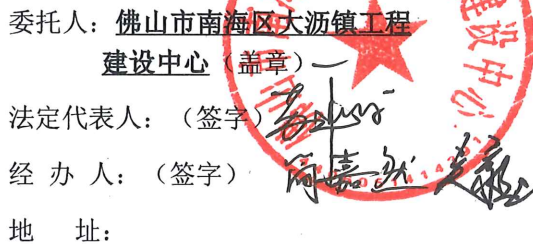 委托人：佛山市南海区大沥镇工程
建设中心（盖章）
法定代表人：（签字）
经 办 人：（签字）
地 址：
建设中心